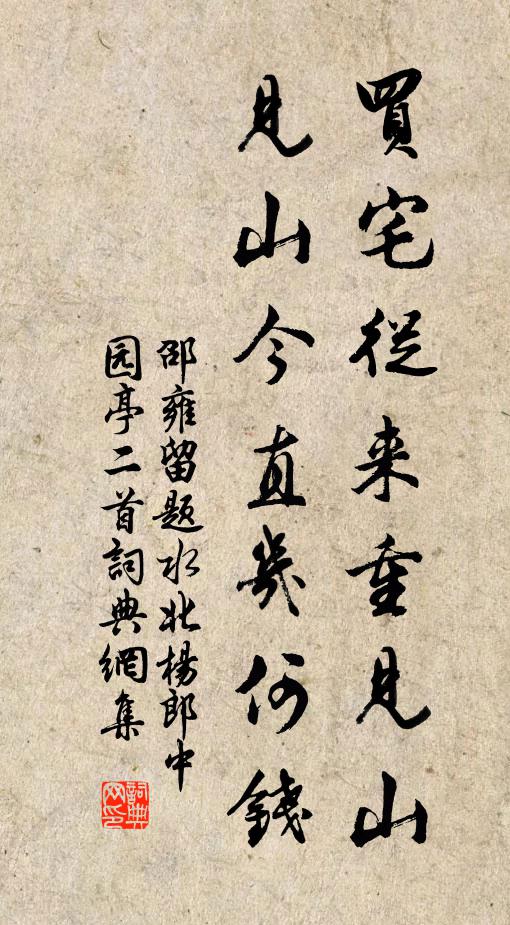 買宅従来重見山
見山今直幾何錢
邵雍留题水北楊郎中
园亭二首詞典網集
詞典
网印